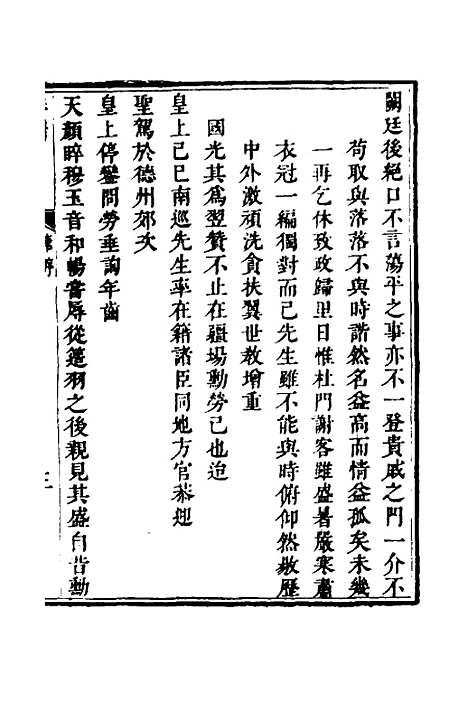 闕廷後絕口不言蕩平之事亦不一登貴戚之門一介不
苟取與落落不與時諧然名益高而情益孤矣未幾
一再乞休致政歸里日惟杜門謝客雖盛暑嚴寒肅
衣冠一編獨對而已先生雖不能與時俯仰然敭歷
中外激頑洗貪扶翼世教增重
國光其爲翌贊不止在疆場勳勞已也迨
皇上己巳南巡先生率在籍諸臣同地方官恭迎
聖駕於德州郊次
皇上停鑾問勞垂詢年齒
天顏睟穆玉音和暢嘗辱從籧羽之後親見其盛自昔勳
序
三